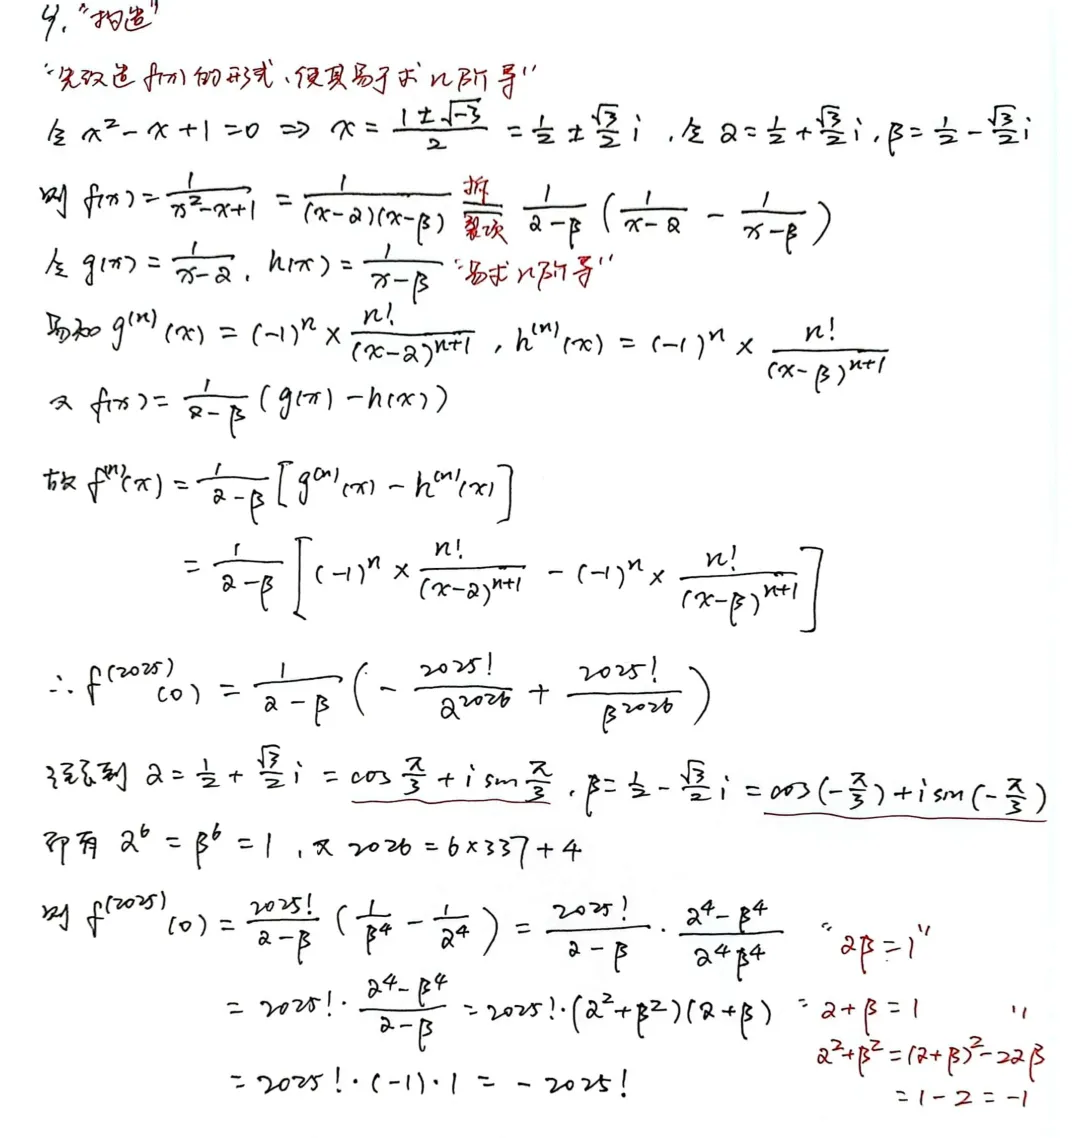 4. "构造"
"先改造 f(x) 的形式、使其易于求 n 阶导"
令 x² - x + 1 = 0 ⇒ x = (1 ± √-3)/2 = 1/2 ± (√3/2)i . 令 α = 1/2 + (√3/2)i , β = 1/2 - (√3/2)i
则 f(x) = 1/(x² - x + 1) = 1/((x-α)(x-β)) 拆 裂项 = 1/(α-β) (1/(x-α) - 1/(x-β))
令 g(x) = 1/(x-α) , h(x) = 1/(x-β) "易求 n 阶导"
易知 g⁽ⁿ⁾(x) = (-1)ⁿ × n!/(x-α)ⁿ⁺¹ , h⁽ⁿ⁾(x) = (-1)ⁿ × n!/(x-β)ⁿ⁺¹
又 f(x) = 1/(α-β) (g(x) - h(x))
故 f⁽ⁿ⁾(x) = 1/(α-β) [g⁽ⁿ⁾(x) - h⁽ⁿ⁾(x)]
= 1/(α-β) [(-1)ⁿ × n!/(x-α)ⁿ⁺¹ - (-1)ⁿ × n!/(x-β)ⁿ⁺¹]
∴ f⁽²⁰²⁵⁾(0) = 1/(α-β) (- 2025!/α²⁰²⁶ + 2025!/β²⁰²⁶)
注意到 α = 1/2 + (√3/2)i = cos π/3 + i sin π/3 , β = 1/2 - (√3/2)i = cos(-π/3) + i sin(-π/3)
即有 α⁶ = β⁶ = 1 , 又 2026 = 6×337 + 4
则 f⁽²⁰²⁵⁾(0) = 2025!/(α-β) (1/β⁴ - 1/α⁴) = 2025!/(α-β) · (α⁴-β⁴)/(α⁴β⁴) "αβ = 1"
= 2025! · (α⁴-β⁴)/(α-β) = 2025! · (α²+β²)(α+β) "α + β = 1"
α²+β² = (α+β)² - 2αβ
= 2025! · (-1) · 1 = - 2025!
= 1 - 2 = -1